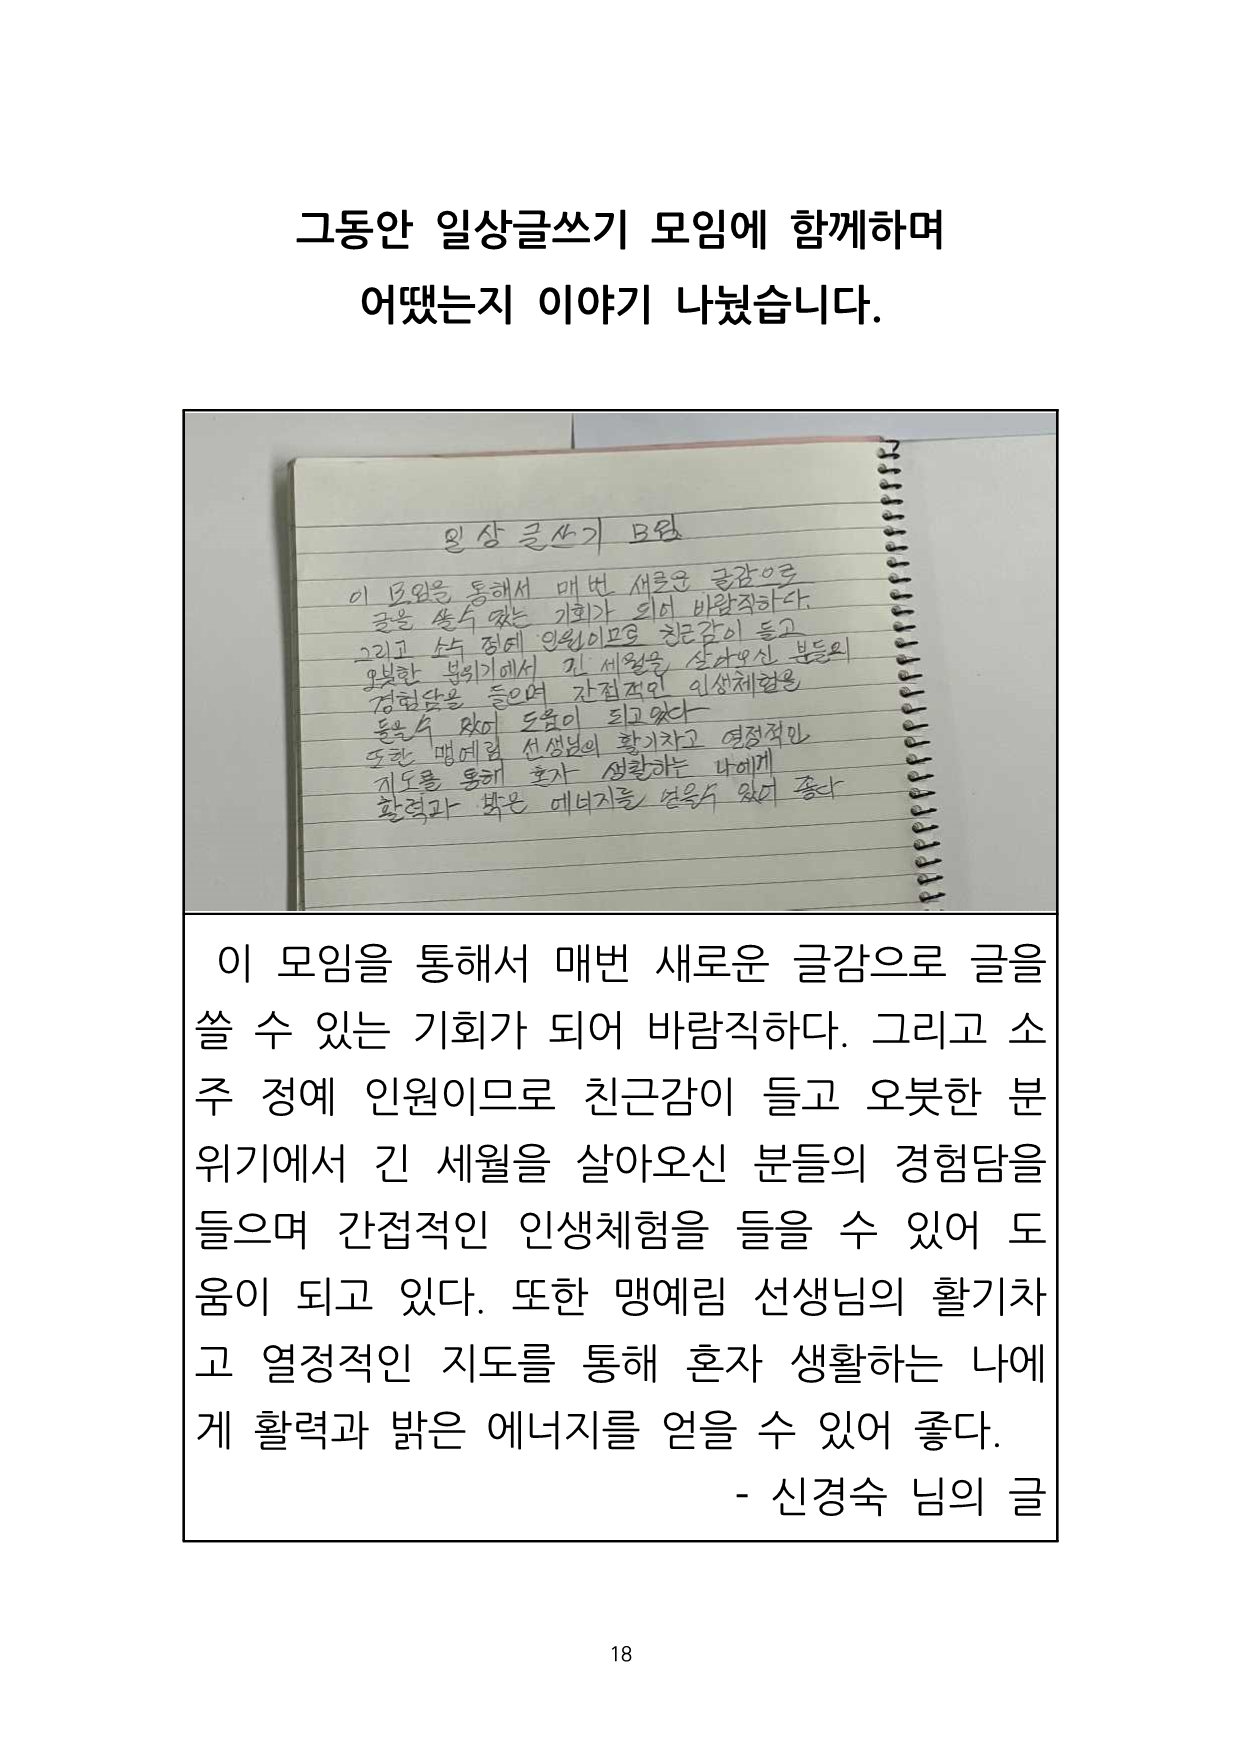 그동안 일상글쓰기 모임에 함께하며
어땠는지 이야기 나눴습니다.
일상 글쓰기 모임
이 모임을 통해서 매번 새로운 글감으로
글을 쓸수 있는 기회가 되어 바람직하다.
그리고 소수 정예 인원이므로 친근감이 들고
오붓한 분위기에서 긴 세월을 살아오신 분들의
경험담을 들으며 간접적인 인생체험을
들을수 있어 도움이 되고 있다
또한 맹예림 선생님의 활기차고 열정적인
지도를 통해 혼자 생활하는 나에게
활력과 밝은 에너지를 얻을수 있어 좋다
이 모임을 통해서 매번 새로운 글감으로 글을
쓸 수 있는 기회가 되어 바람직하다. 그리고 소
주 정예 인원이므로 친근감이 들고 오붓한 분
위기에서 긴 세월을 살아오신 분들의 경험담을
들으며 간접적인 인생체험을 들을 수 있어 도
움이 되고 있다. 또한 맹예림 선생님의 활기차
고 열정적인 지도를 통해 혼자 생활하는 나에
게 활력과 밝은 에너지를 얻을 수 있어 좋다.
- 신경숙 님의 글
18